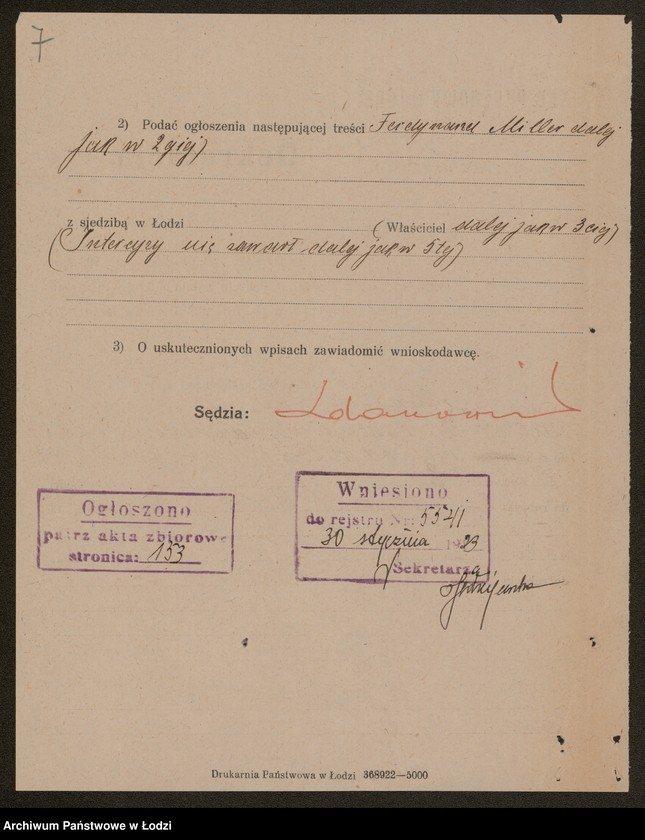 7
2) Podać ogłoszenia następującej treści Ferdynand Miller dalej
jak w 2giej)
z siedzibą w Łodzi (Właściciel dalej jak w 3ciej)
(Intercyzy nie zawarł dalej jak w 5tej)
3) O uskutecznionych wpisach zawiadomić wnioskodawcę.
Sędzia:
Ogłoszono
patrz akta zbiorowe
stronica: 153
Wniesiono
do rejstru Nr: 5541
30 stycznia 1923
Sekretarz
Drukarnia Państwowa w Łodzi 368922—5000
Archiwum Państwowe w Łodzi